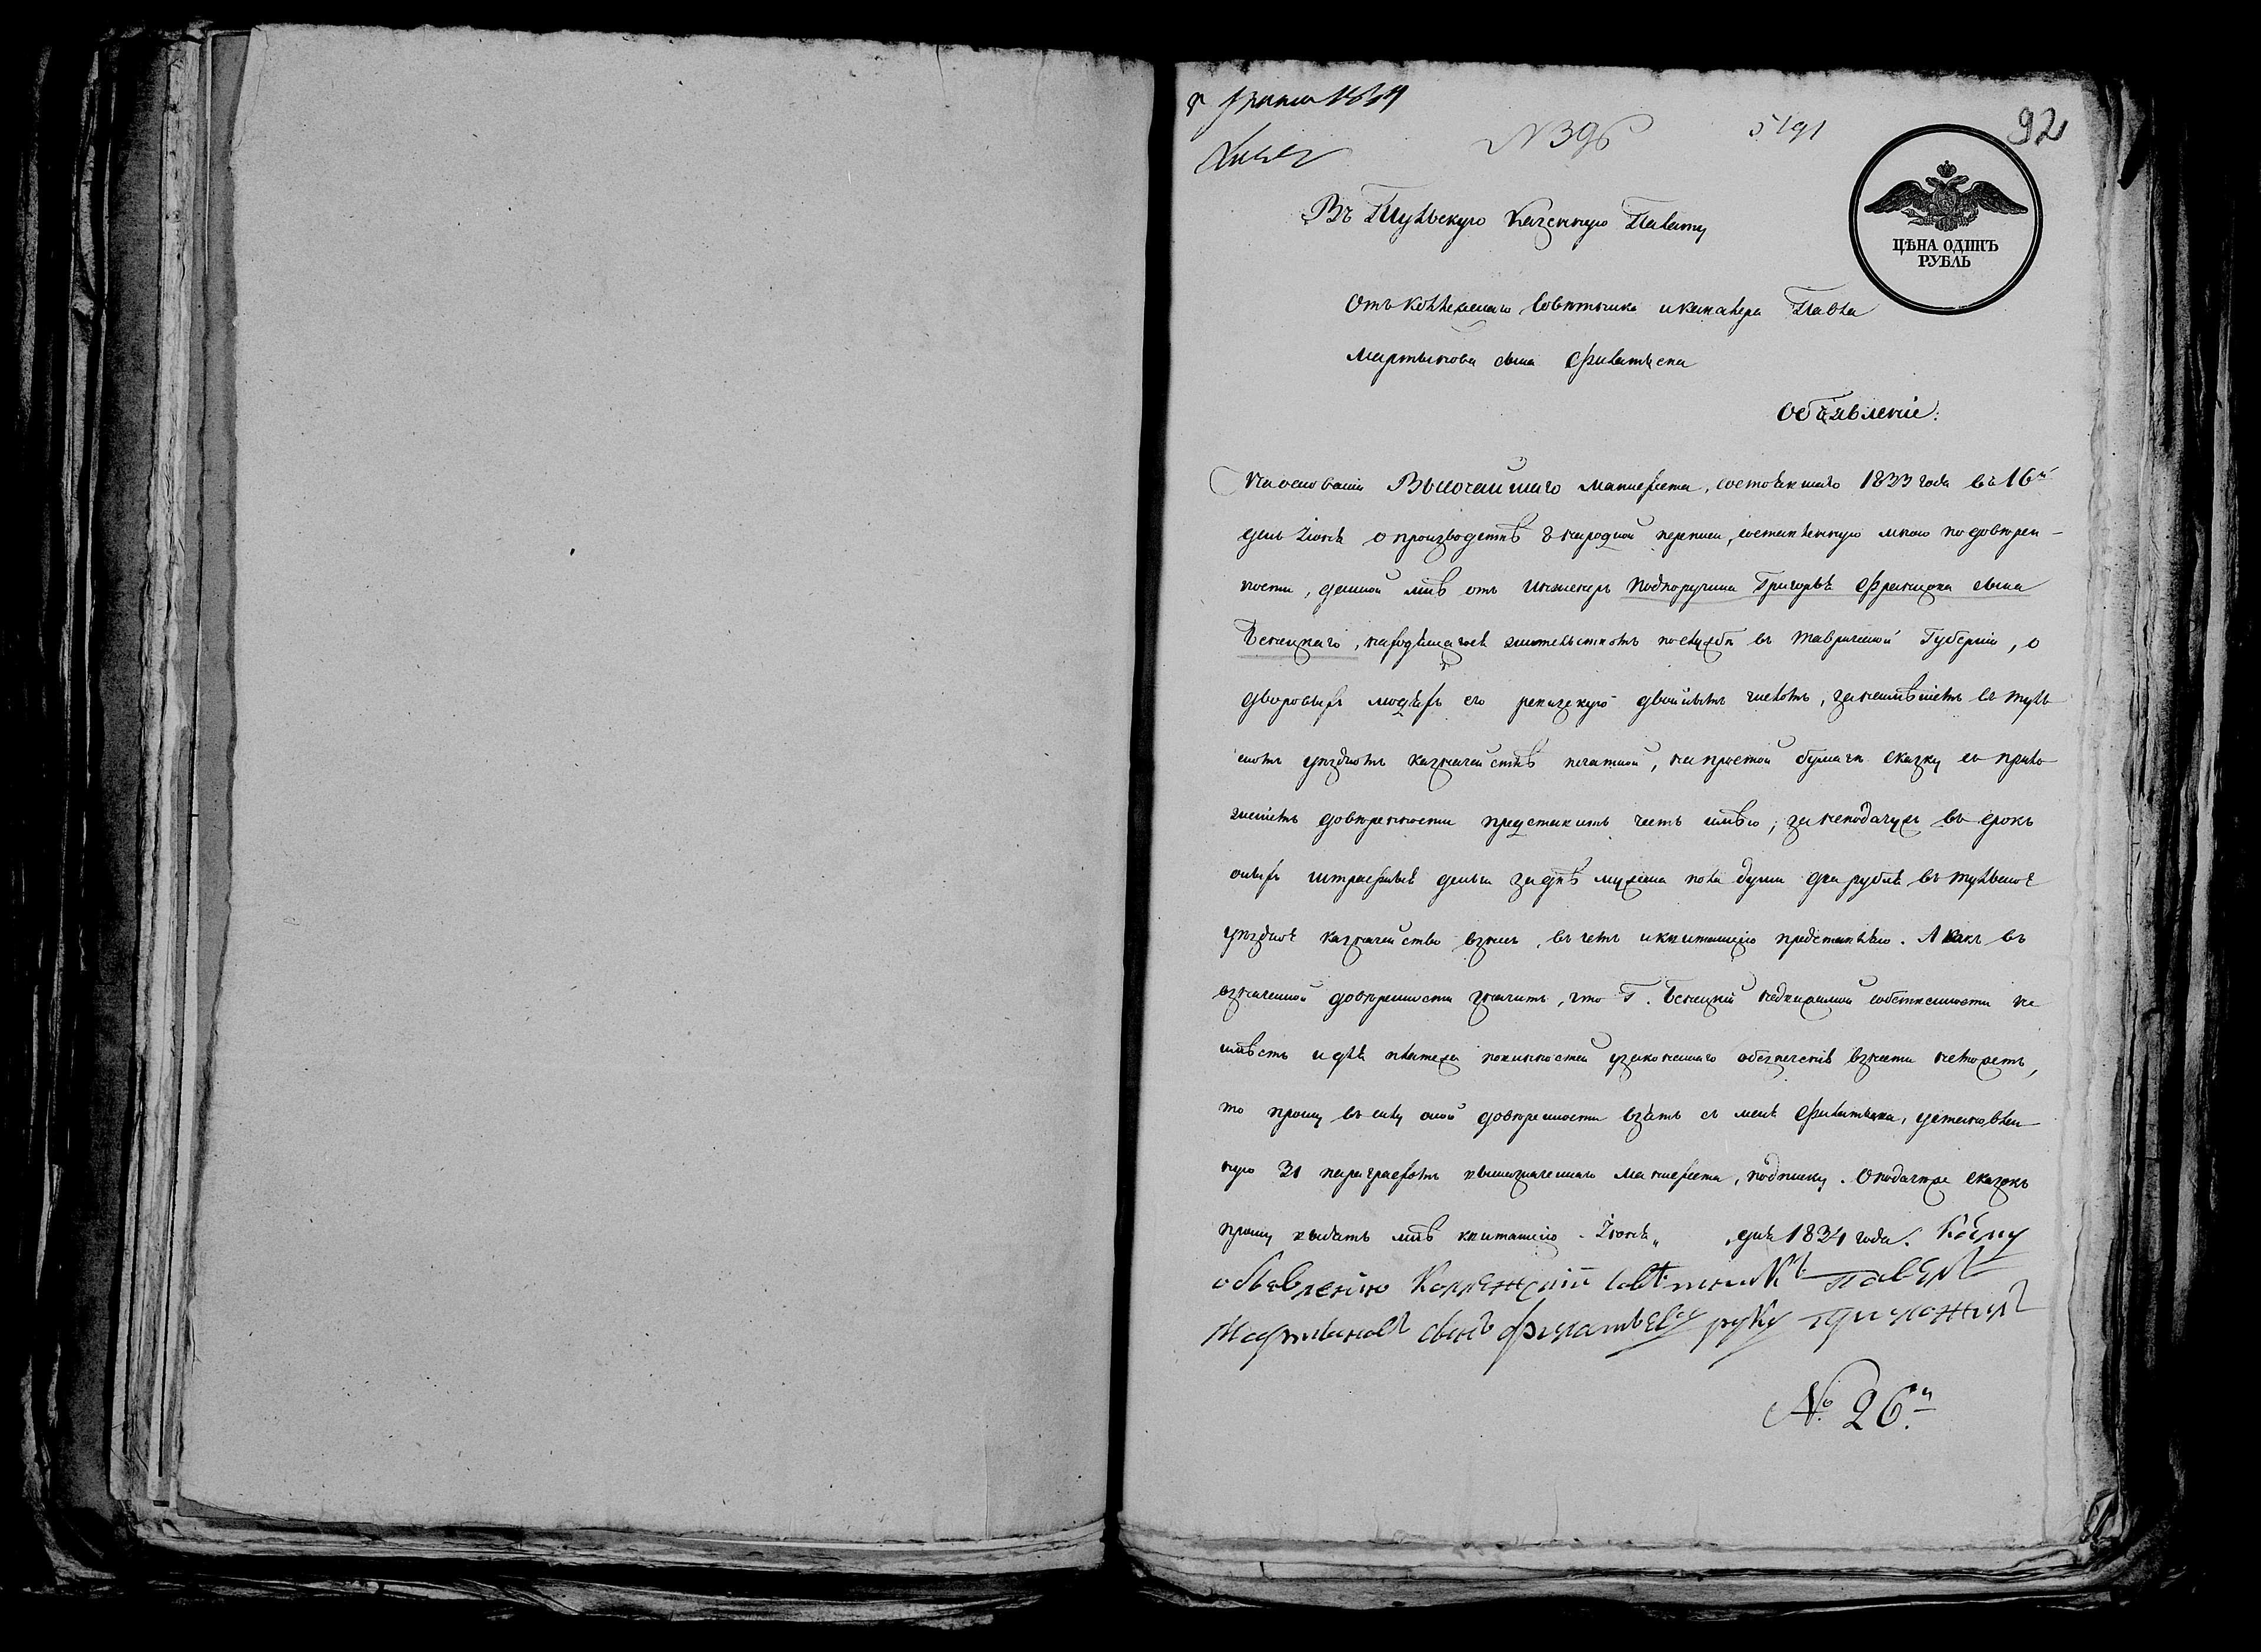 № 396
5191
92
ЦѢНА ОДИНЪ
РУБЛЬ
Въ Тульскую Казенную Палату
Отъ Коллежскаго Совѣтника и кавалера Павла
Мартынова сына Филатьева
Объявленіе:
На основаніи Высочайшаго манифеста, состоявшаго 1833 года въ 16й
день Іюня о производствѣ 8 народной переписи, составленную мною по довѣрен-
ности, данной мнѣ отъ Инженеръ Подпоручика Григорья сына
Бенецкаго, находящагося жительствомъ по службѣ въ Таврической Губерніи, о
дворовыхъ людяхъ его ревизскую двойнымъ числомъ, за неимѣніемъ въ Туль
скомъ уѣздномъ казначействѣ печатной, на простой бумагѣ сказку съ прило
женіемъ довѣренности представить честь имѣю; за неподачу въ срокъ
оныхъ штрафныя деньги за двѣ мужска пола души два рубля въ Тульское
уѣздное казначейство взнесъ, въ чемъ и квитанцію представляю. А какъ въ
означенной довѣренности значитъ, что Г. Бенецкій недвижимой собственности не
имѣетъ и для платежа повинностей узаконеннаго обезпеченія взнести не можетъ,
то прошу въ силу оной довѣренности взять съ меня Филатьева, установлен-
ную 31 параграфомъ вышеозначеннаго манифеста, подписку. О подачѣ сказокъ
прошу выдать мнѣ квитанцію. Іюня „ дня 1834 года. К сему
объявленію Коллежскій совѣтникъ Павелъ
Мартыновъ сынъ Филатьевъ руку приложилъ
№ 26й